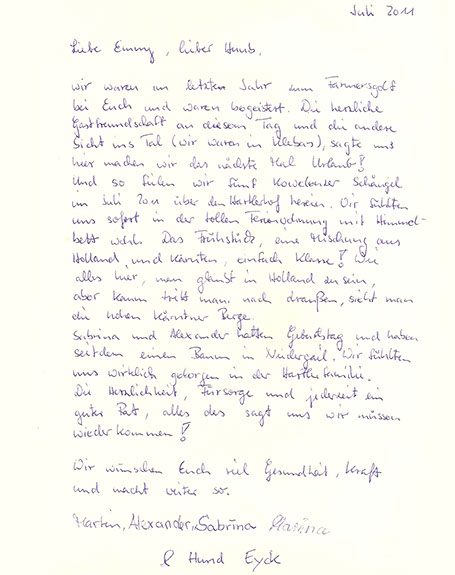 Juli 2011
Liebe Emmy, lieber Huub,
wir waren im letzten Jahr zum Farmersgolf
bei Euch und waren begeistert. Die herzliche
Gastfreundschaft an diesem Tag und die andere
Sicht ins Tal (wir waren in Klebas), sagte uns
hier machen wir das nächste Mal Urlaub!
Und so fielen wir fünf Schängel
im Juli 2011 über den Hartlerhof herein. Wir fühlten
uns sofort in der tollen Ferienwohnung mit Himmel-
bett wohl. Das Frühstück, eine Mischung aus
Holland und Kärnten, einfach Klasse! Wie
alles hier, man glaubt in Holland zu sein,
aber kaum tritt man nach draußen, sieht man
die hohen Kärntner Berge.
Sabrina und Alexander hatten Geburtstag und haben
seitdem einen Baum in Niedergail. Wir fühlten
uns wirklich geborgen in der Hartlerfamilie.
Die Herzlichkeit, Fürsorge und jederzeit ein
guter Rat, alles das sagt uns wir müssen
wiederkommen!
Wir wünschen Euch viel Gesundheit, Kraft
und macht weiter so.
Martin, Alexander, Sabrina Marina
& Hund Eyck